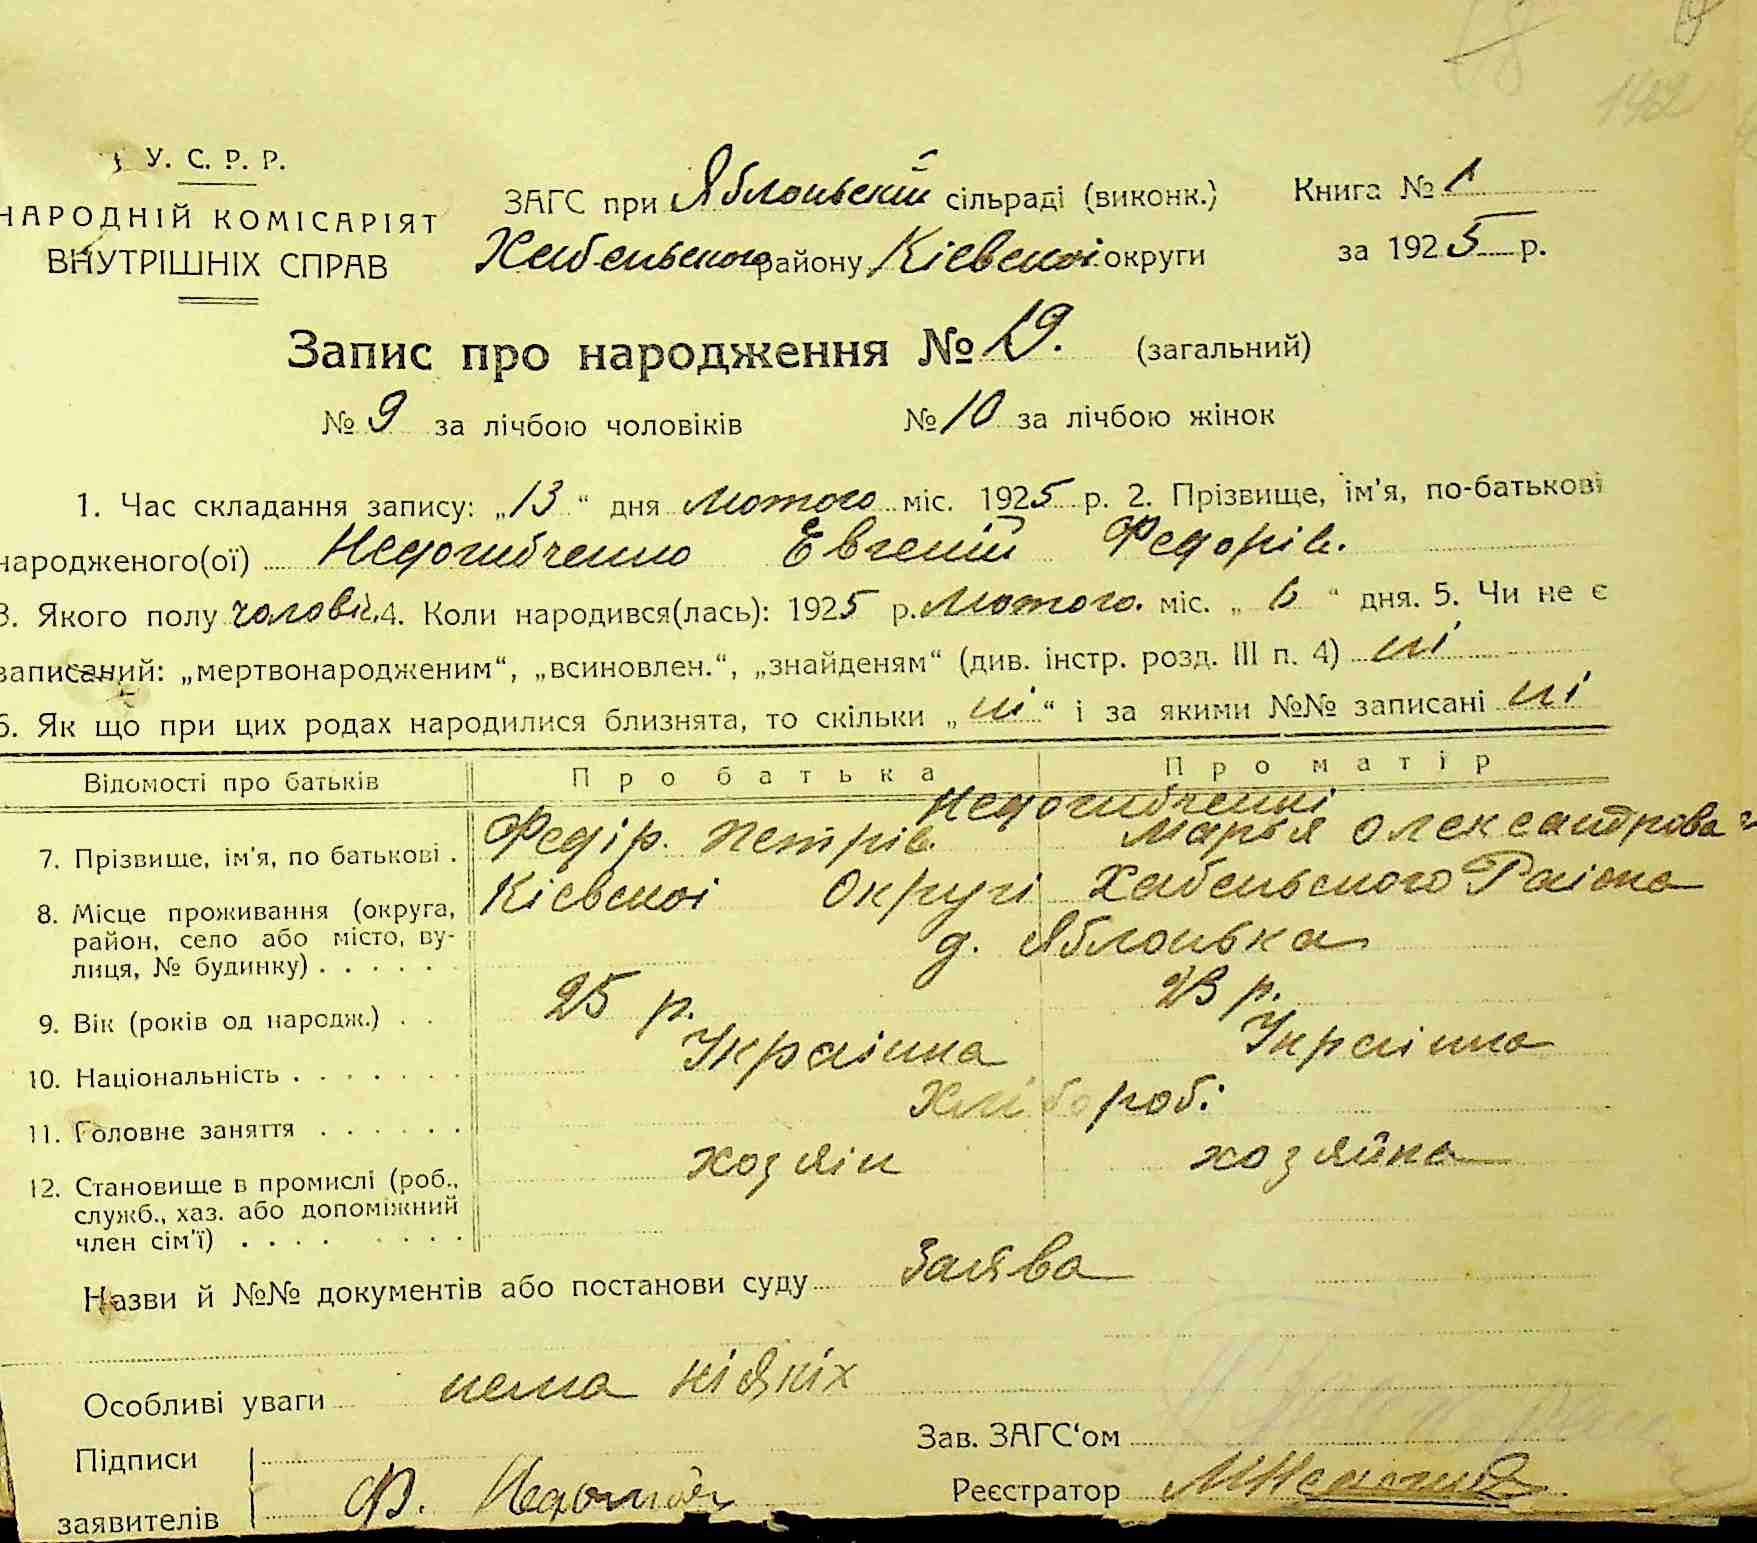 У. С. Р. Р.
НАРОДНІЙ КОМІСАРІЯТ
ВНУТРІШНІХ СПРАВ
ЗАГС при Яблоньскій сільраді (виконк.) Книга № 1
Хабеньского району Кіевскоі округи за 1925 р.
Запис про народження № 19. (загальний)
№ 9 за лічбою чоловіків № 10 за лічбою жінок
1. Час складання запису: „13“ дня Лютого міс. 1925 р. 2. Прізвище, ім'я, по-батькові
народженого(ої) Недогибченко Евгеній Федорів.
3. Якого полу чоловік. 4. Коли народився(лась): 1925 р. Лютого. міс. „ 6 “ дня. 5. Чи не є
записаний: „мертвонародженим“, „всиновлен.“, „знайденям“ (див. інстр. розд. III п. 4) ні
6. Як що при цих родах народилися близнята, то скільки „ ні “ і за якими №№ записані ні
Відомості про батьків Про батька Про матір
Недогибченкі
7. Прізвище, ім'я, по батькові . Федір. Петрів. Марья Олександрова
8. Місце проживання (округа, Кіевскоі Округі Хабеньского Раіона
район, село або місто, ву-
лиця, № будинку) . . . . . д. Яблонька
9. Вік (років од народж.) . . 25 р. 23 р.
10. Національність . . . . . . . Украінка Украінка
11. Головне заняття . . . . . . Хліборобі
12. Становище в промислі (роб., хозяін хозяйка
служб., хаз. або допоміжний
член сім'ї) . . . . . . . .
Назви й №№ документів або постанови суду Заява
Особливі уваги нема ніякіх
Зав. ЗАГС‘ом
Підписи
Реєстратор
заявителів Ф.